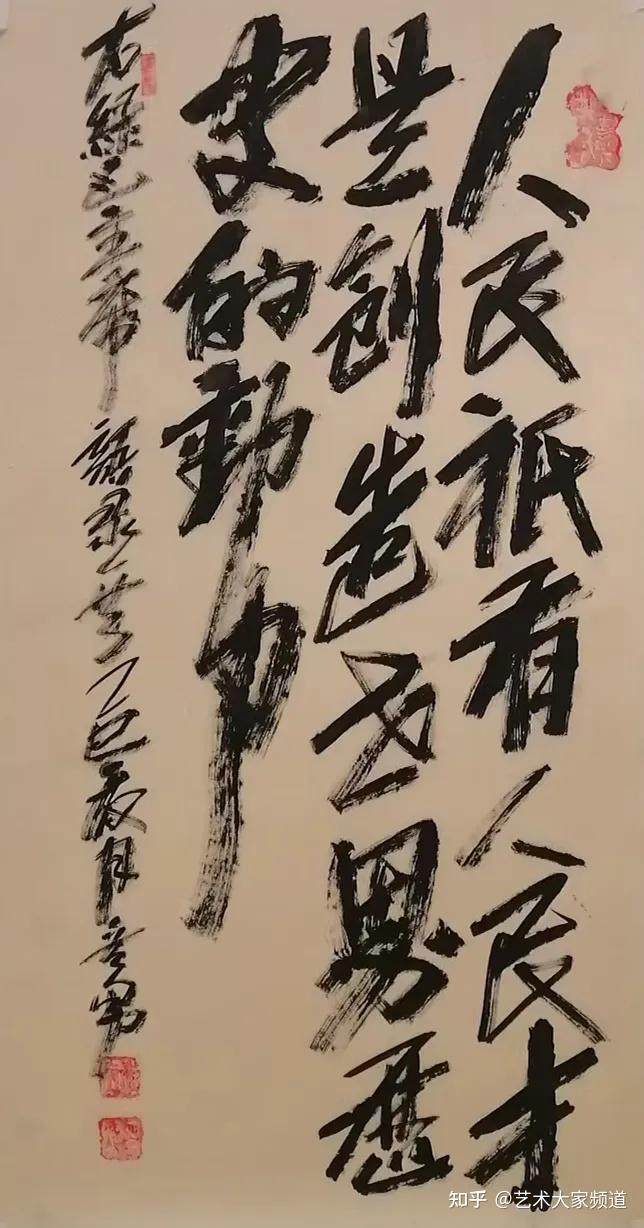 人民祇有人民才
是创造世界歷
史的動力
右録毛主席語录一首丁巳夜月
知乎 @艺术大家频道